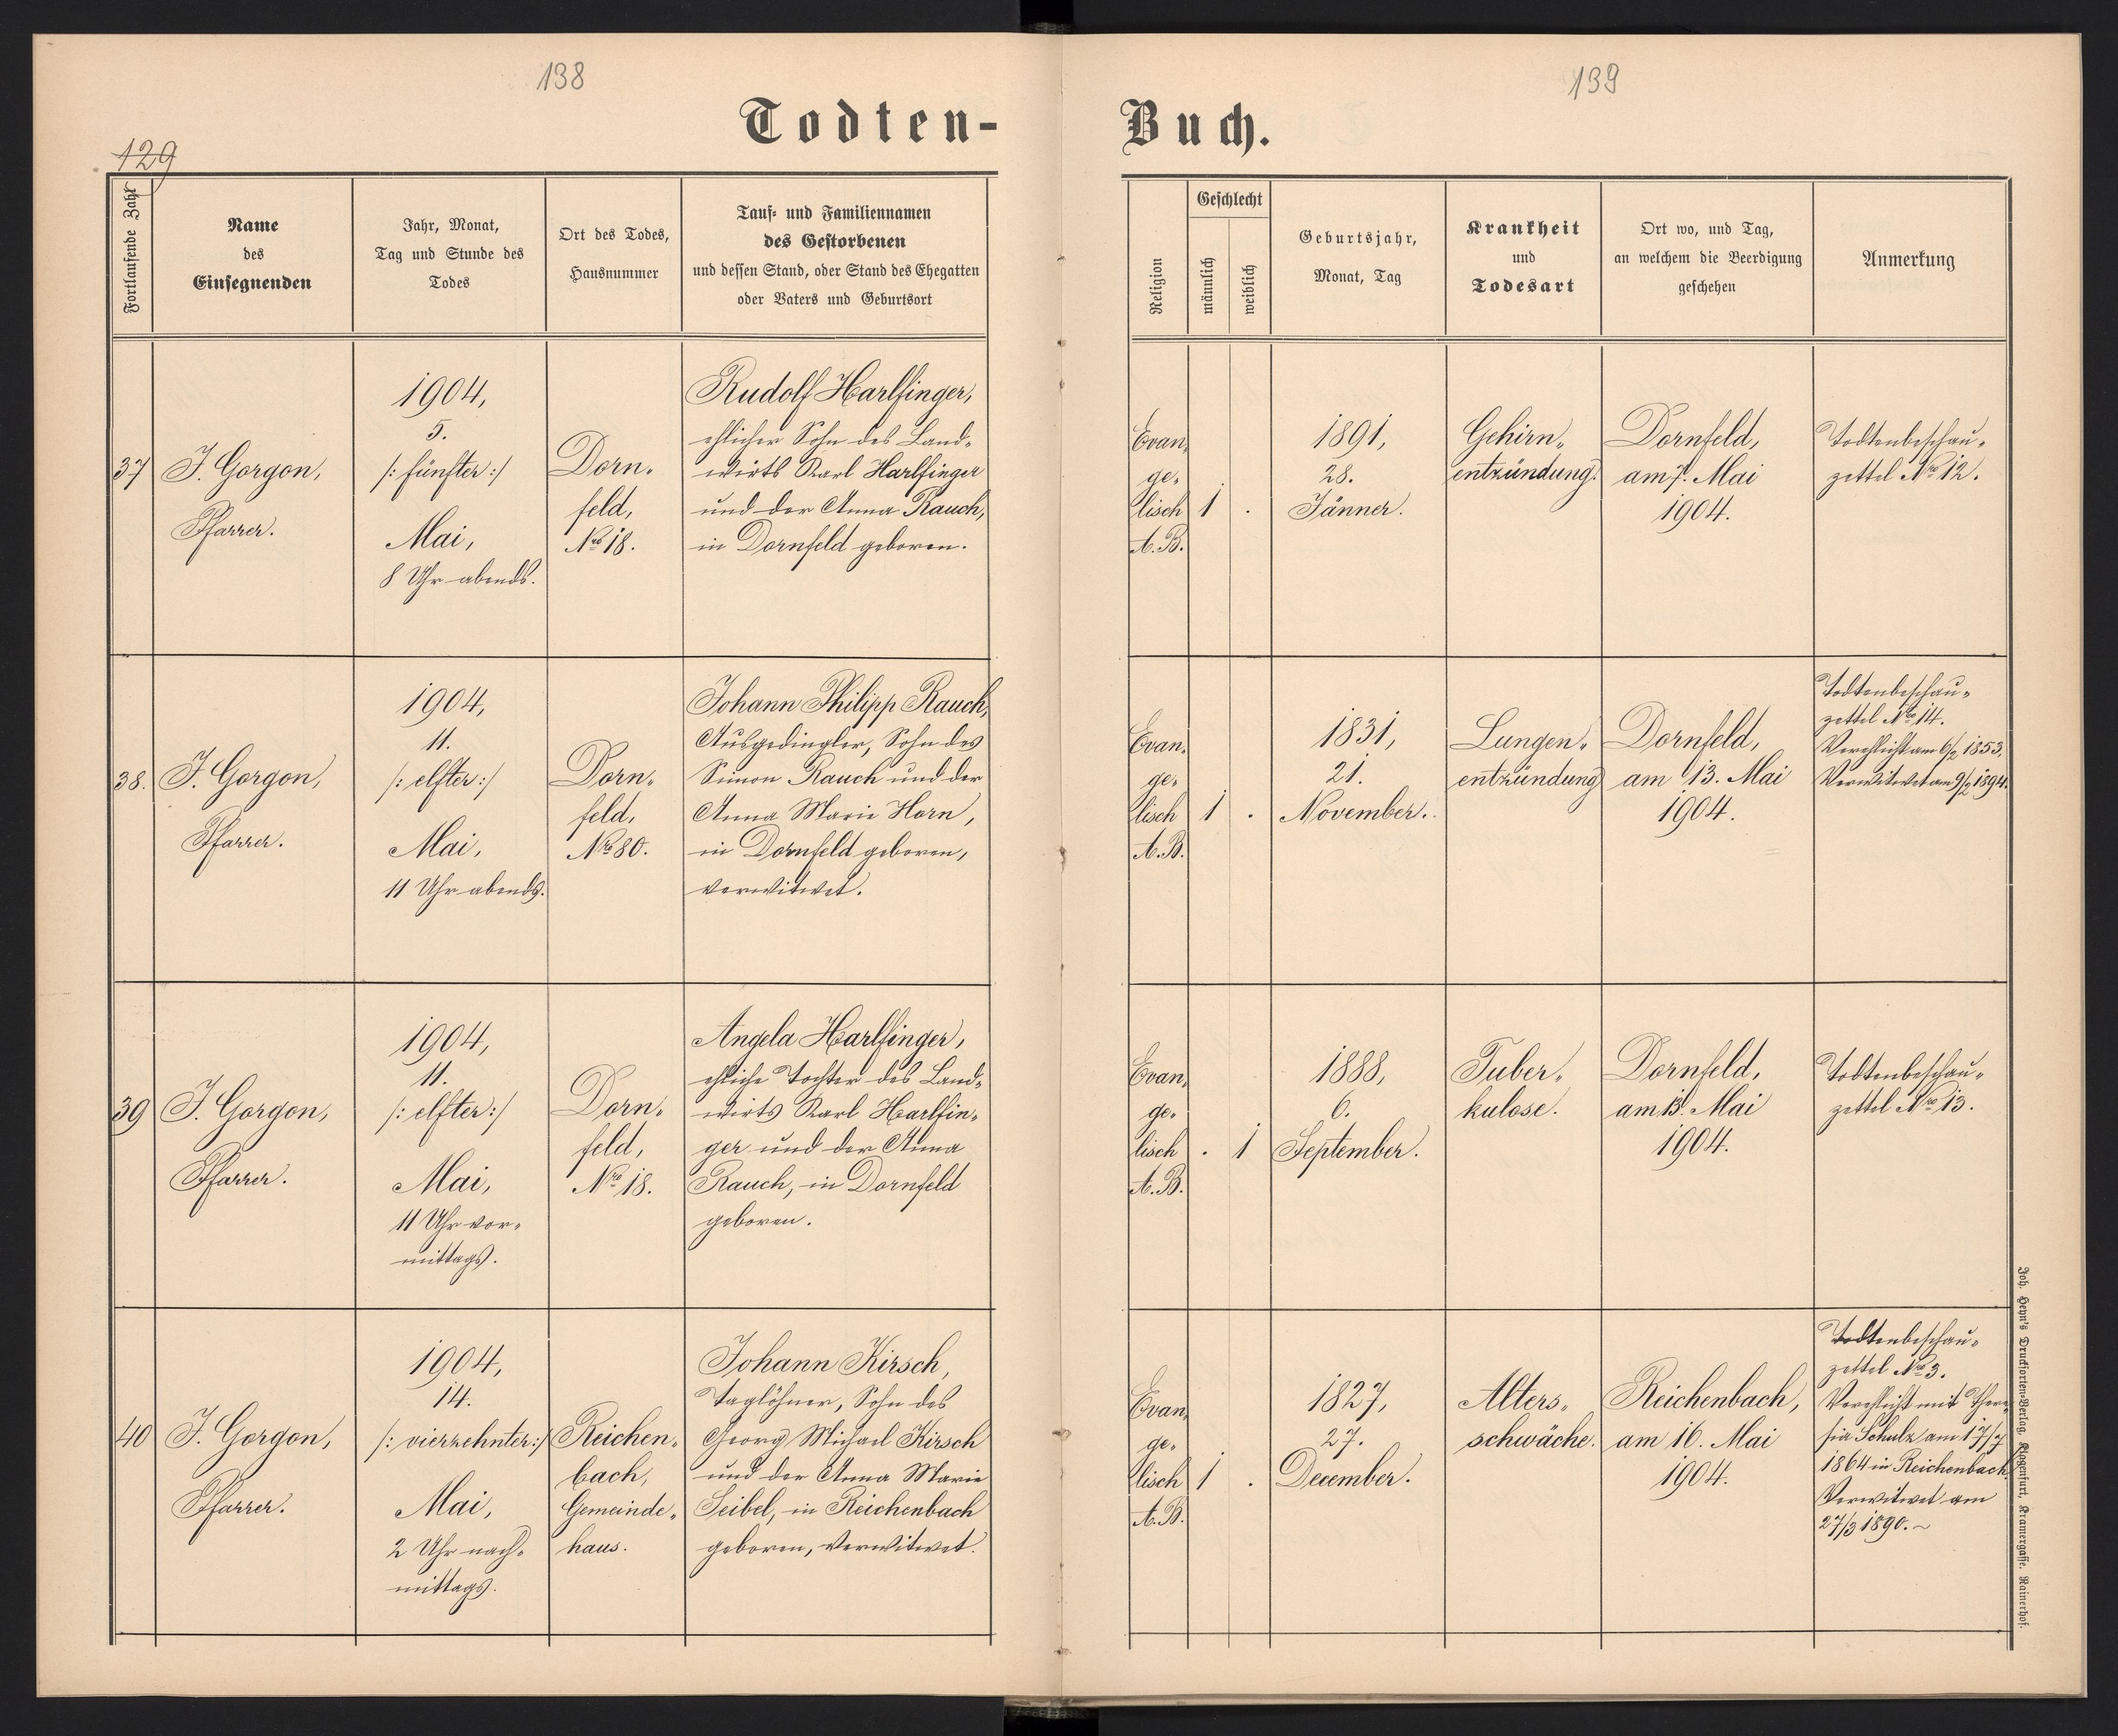 138
Todten-
129
Fortlaufende Zahl
Name
des
Einsegnenden
Jahr, Monat,
Tag und Stunde des
Todes
Ort des Todes,
Hausnummer
Tauf- und Familiennamen
des Gestorbenen
und dessen Stand, oder Stand des Ehegatten
oder Vaters und Geburtsort
37
J. Gorgon,
Pfarrer.
1904,
5.
/: fünfter :/
Mai,
8 Uhr abends.
Dorn-
feld,
Nro 18.
Rudolf Harlfinger,
ehlicher Sohn des Land-
wirts Karl Harlfinger
und der Anna Rauch,
in Dornfeld geboren.
38.
J. Gorgon,
Pfarrer.
1904,
11.
/: elfter :/
Mai,
11 Uhr abends.
Dorn-
feld,
Nro 80.
Johann Philipp Rauch,
Ausgedingler, Sohn des
Simon Rauch und der
Anna Marie Horn,
in Dornfeld geboren,
verwitwet.
39
J. Gorgon,
Pfarrer.
1904,
11.
/: elfter :/
Mai,
11 Uhr vor-
mittags.
Dorn-
feld,
Nro 18.
Angela Harlfinger,
ehliche Tochter des Land-
wirts Karl Harlfin-
ger und der Anna
Rauch, in Dornfeld
geboren.
40
J. Gorgon,
Pfarrer.
1904,
14.
/: vierzehnter :/
Mai,
2 Uhr nach-
mittags.
Reichen-
bach,
Gemeinde-
haus.
Johann Kirsch,
Taglöhner, Sohn des
Georg Michael Kirsch
und der Anna Marie
Seibel, in Reichenbach
geboren, verwitwet.
139
Buch.
Religion
Geschlecht
männlich
weiblich
Geburtsjahr,
Monat, Tag
Krankheit
und
Todesart
Ort wo, und Tag,
an welchem die Beerdigung
geschehen
Anmerkung
Evan-
ge-
lisch
A.B.
1
.
1891,
28.
Jänner.
Gehirn-
entzündung.
Dornfeld,
am 7. Mai
1904.
Todtenbeschau-
zettel Nro 12.
Evan-
ge-
lisch
A.B.
1
.
1831,
21.
November.
Lungen-
entzündung
Dornfeld,
am 13. Mai
1904.
Todtenbeschau-
zettel Nro 14.
Verehlicht am 6/2 1853,
Verwitwet am 9/2 1894.
Evan-
ge-
lisch
A.B.
.
1
1888,
6.
September.
Tuber-
kulose.
Dornfeld,
am 13. Mai
1904.
Todtenbeschau-
zettel Nro 13.
Evan-
ge-
lisch
A.B.
1
.
1827,
27.
December.
Alters-
schwäche.
Reichenbach,
am 16. Mai
1904.
Todtenbeschau-
zettel Nro 3.
Verehlicht mit There-
sia Schulz am 17/7
1864 in Reichenbach.
Verwitwet am
27/3 1890. ~
Joh. Heyn's Drucksorten-Verlag, Klagenfurt, Kramergasse. Rainerhof.